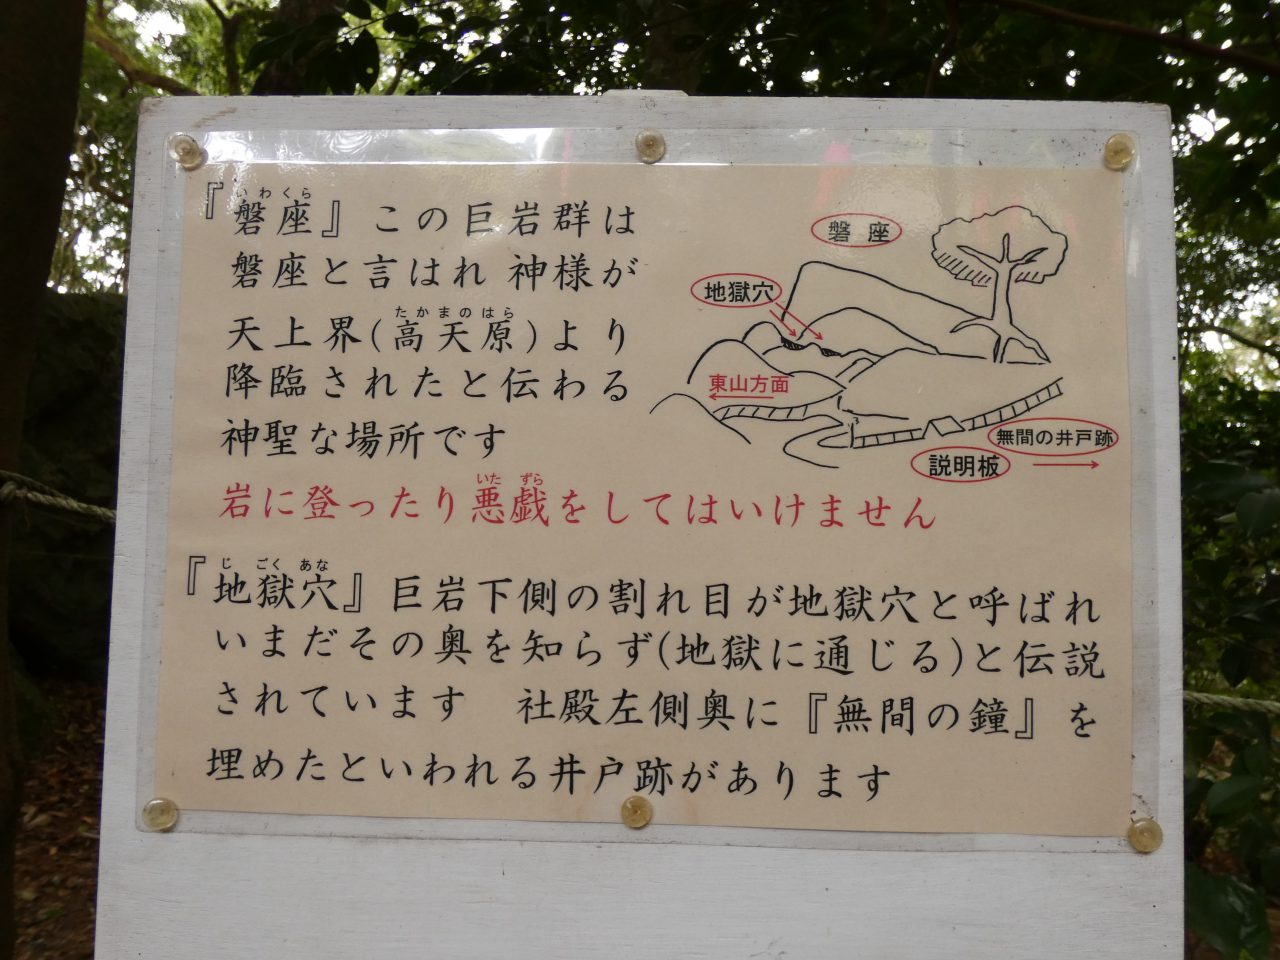 『磐座』この巨岩群は
磐座と言はれ 神様が
天上界(高天原)より
降臨されたと伝わる
神聖な場所です
岩に登ったり悪戯をしてはいけません
『地獄穴』巨岩下側の割れ目が地獄穴と呼ばれ
いまだその奥を知らず(地獄に通じる)と伝説
されています 社殿左側奥に『無間の鐘』を
埋めたといわれる井戸跡があります
いわくら
たかまのはら
いた ずら
じ ごく あな
磐座
地獄穴
東山方面
無間の井戸跡
説明板